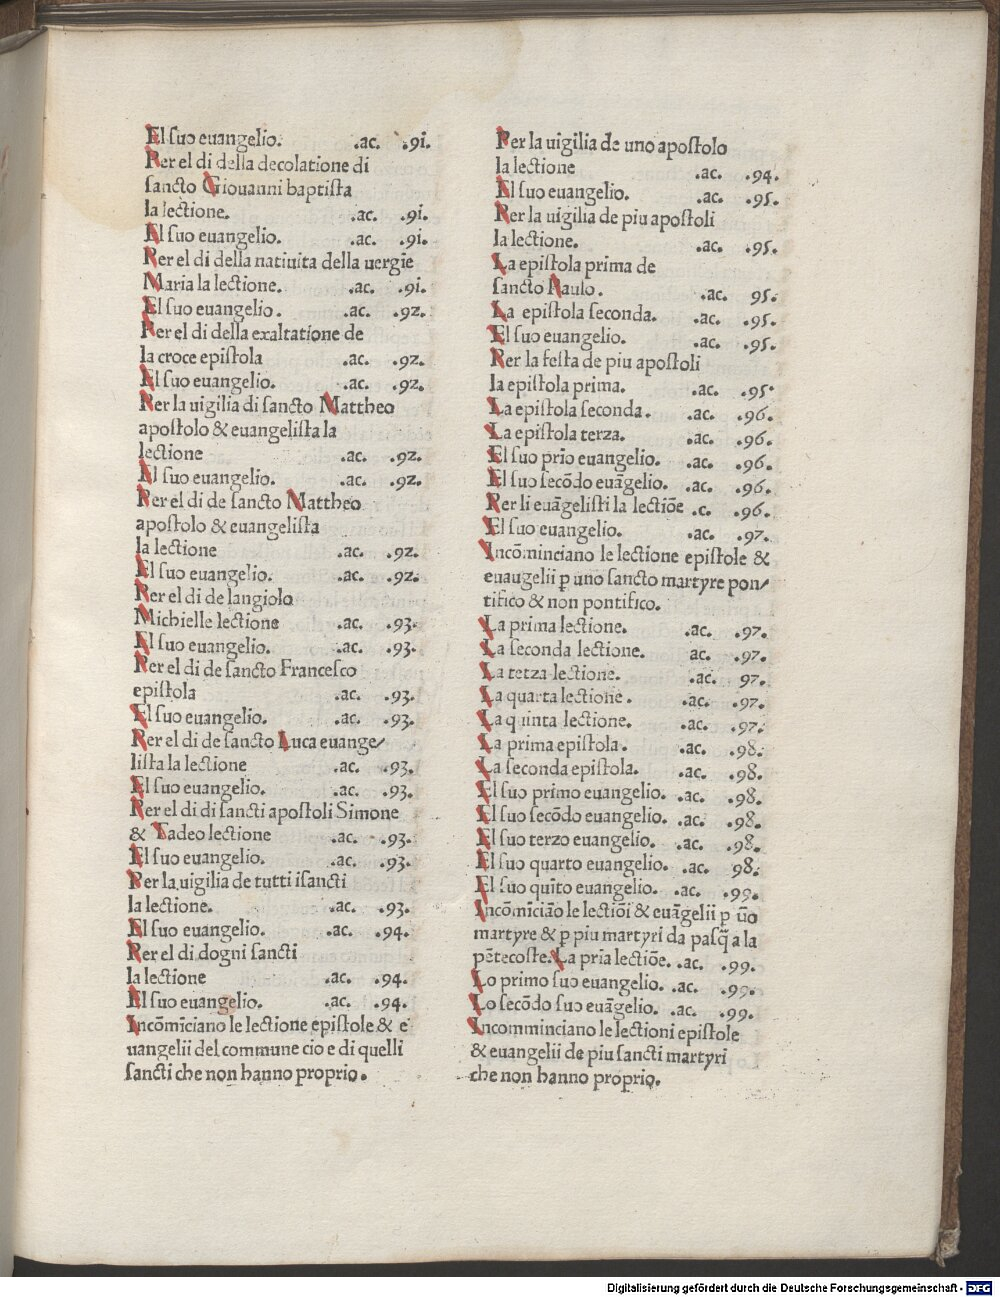 El suo euangelio. .ac. .9i.
Per el di della decolatione di
sancto Giouanni baptista
la lectione. .ac. .9i.
El suo euangelio. .ac. .9i.
Per el di della natiuita della uergie
Maria la lectione. .ac. .9i.
El suo euangelio. .ac. .92.
Per el di della exaltatione de
la croce epistola .ac. .92.
El suo euangelio. .ac. .92.
Per la uigilia di sancto Mattheo
apostolo & euangelista la
lectione .ac. .92.
El suo euangelio. .ac. .92.
Per el di de sancto Mattheo
apostolo & euangelista
la lectione .ac. .92.
El suo euangelio. .ac. .92.
Per el di de langiolo
Michielle lectione .ac. .93.
El suo euangelio. .ac. .93.
Per el di de sancto Francesco
epistola .ac. .93.
El suo euangelio. .ac. .93.
Per el di de sancto Luca euange/
lista la lectione .ac. .93.
El suo euangelio. .ac. .93.
Per el di di sancti apostoli Simone
& Tadeo lectione .ac. .93.
El suo euangelio. .ac. .93.
Per la uigilia de tutti isancti
la lectione. .ac. .93.
El suo euangelio. .ac. .94.
Per el di dogni sancti
la lectione .ac. .94.
El suo euangelio. .ac. .94.
Incōmīciano le lectione epistole & e
uangelii del commune cio e di quelli
sancti che non hanno proprio.
Per la uigilia de uno apostolo
la lectione .ac. .94.
El suo euangelio. .ac. .95.
Per la uigilia de piu apostoli
la lectione. .ac. .95.
La epistola prima de
sancto Paulo. .ac. 95.
La epistola seconda. .ac. .95.
El suo euangelio. .ac. .95.
Per la festa de piu apostoli
la epistola prima. .ac. .95.
La epistola seconda. .ac. .96.
La epistola terza. .ac. .96.
El suo prīo euangelio. .ac. .96.
El suo secōdo euāgelio. .ac. .96.
Per li euāgelisti la lectiōe .c. .96.
El suo euangelio. .ac. .97.
Incōminciano le lectione epistole &
euaugelii p uno sancto martyre pon/
tifico & non pontifico.
La prima lectione. .ac. .97.
La seconda lectione. ac. .97.
La tetza lectione. .ac. 97.
La quarta lectione. .ac. .97.
La quinta lectione. .ac. .97.
La prima epistola. .ac. .98.
La seconda epistola. .ac. .98.
El suo primo euangelio. .ac. .98.
El suo secōdo euangelio. .ac. .98.
El suo terzo euangelio. .ac. .98.
El suo quarto euangelio. .ac. 98.
El suo quīto euangelio. .ac. .99.
Incōmīciāo le lectiōi & euāgelii p ūo
martyre & p piu martyri da pasq̄ a la
pētecoste. La pria lectiōe. .ac. .99.
Lo primo suo euangelio. .ac. .99.
Lo secōdo suo euāgelio. .ac. .99.
Incomminciano le lectioni epistole
& euangelii de piu sancti martyri
che non hanno proprio.
Digitalisierung gefördert durch die Deutsche Forschungsgemeinschaft - DFG